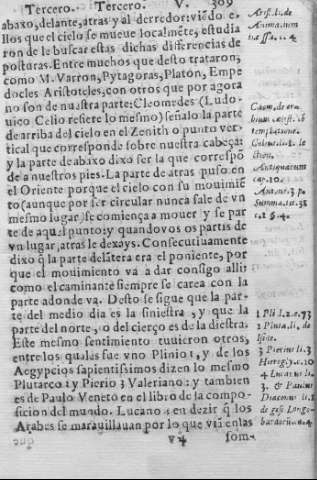 Tercero. Tercero. V. 309
abaxo, delante, atras y al derredor: viẽdo e-
llos que el cielo se mueue localmẽte, estudia
ron de le buscar estas dichas differencias de
posturas. Entre muchos que desto trataron,
como M. Varron, Pytagoras, Platon, Empe
docles Aristoteles, con otros que por agora
no son de nuestra parte: Cleomedes (Ludo-
uico Celio refiere lo mesmo) señalo la parte
de arriba del cielo en el Zenith o punto ver-
tical que corresponde sobre nuestra cabeça:
y la parte de abaxo dixo ser la que correspõ
de a nuestros pies. La parte de atras puso en
el Oriente porque el cielo con su mouimiẽ
to (aunque por ser circular nunca sale de vn
mesmo lugar) se comiença a mouer y se par
te de aquel punto: y quando vos os partis de
vn lugar, atras le dexays. Consecutiuamente
dixo q̃ la parte delãtera era el poniente, por
que el mouimiento va a dar consigo alli:
como el caminante siempre se carea con la
parte adonde va. Desto se sigue que la par-
te del medio dia es la siniestra, y que la
parte del norte, o del cierço es de la diestra.
Este mesmo sentimiento tuuieron otros,
entre los quales fue vno Plinio 1, y de los
Aegypcios sapientissimos dizen lo mesmo
Plutarco 2 y Pierio 3 Valeriano: y tambien
es de Paulo Veneto en el libro de la compo-
sicion del mundo. Lucano 4 en dezir q̃ los
Arabes se marauillauan por lo que viã en las
V 4 som-
Arist. l. de
Animatum
1 Pli l. 2. c. 73
2 Pluta. li. de
Iside.
3 Pierius li. 3
Hierogly. c. 10
4 Lucanus li.
3. & Paulus
Diaconus li. 1
de gest. Lango-